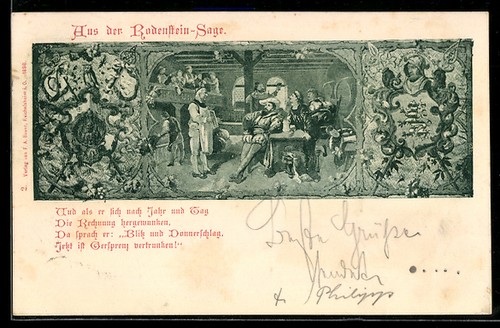 Aus der Rodenstein-Sage.
Und als er sich nach Jahr und Tag
Die Rechnung hergewunken,
Da sprach er: „Blitz und Donnerschlag,
Jetzt ist Gersprenz vertrunken!"
Beste Grüße
sendet
+ Philipp
2. Verlag von